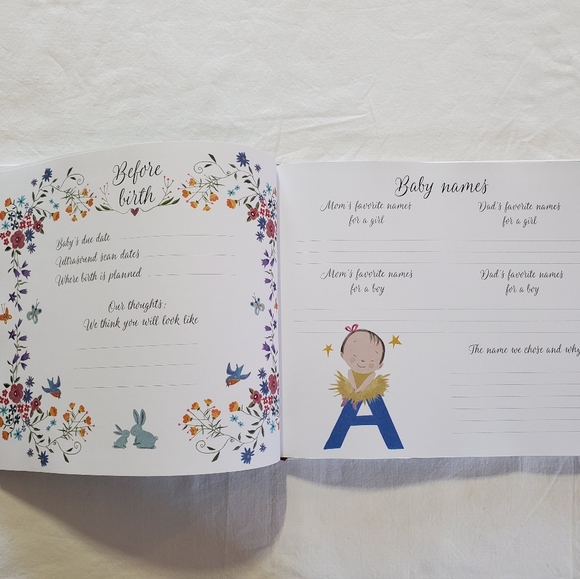 Before
birth
Baby's due date
Ultrasound scan dates
Where birth is planned
Our thoughts:
We think you will look like
Baby names
Mom's favorite names
for a girl
Dad's favorite names
for a girl
Mom's favorite names
for a boy
Dad's favorite names
for a boy
The name we chose and why
A